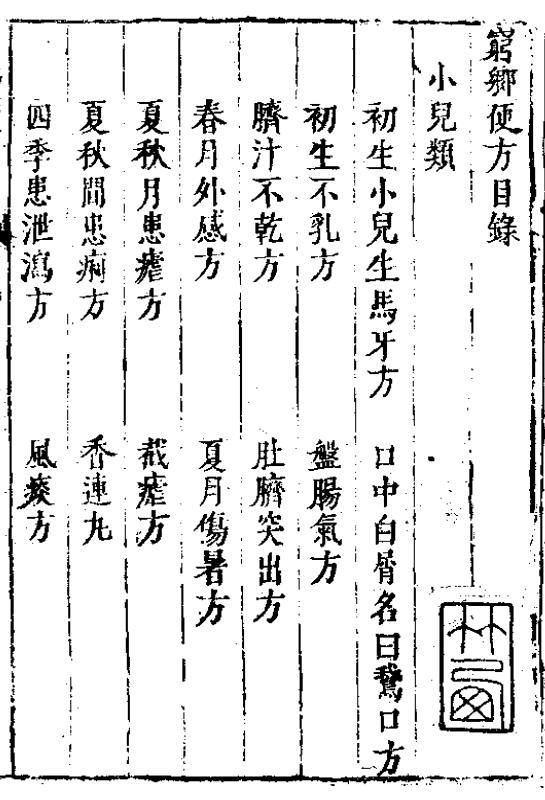 窮鄉便方目錄
小兒類
初生小兒生馬牙方　口中白屑名曰鵞口方
初生不乳方　盤腸氣方
臍汁不乾方　肚臍突出方
春月外感方　夏月傷暑方
夏秋月患瘧方　截瘧方
夏秋間患痢方　香連丸
四季患泄瀉方　風痰方